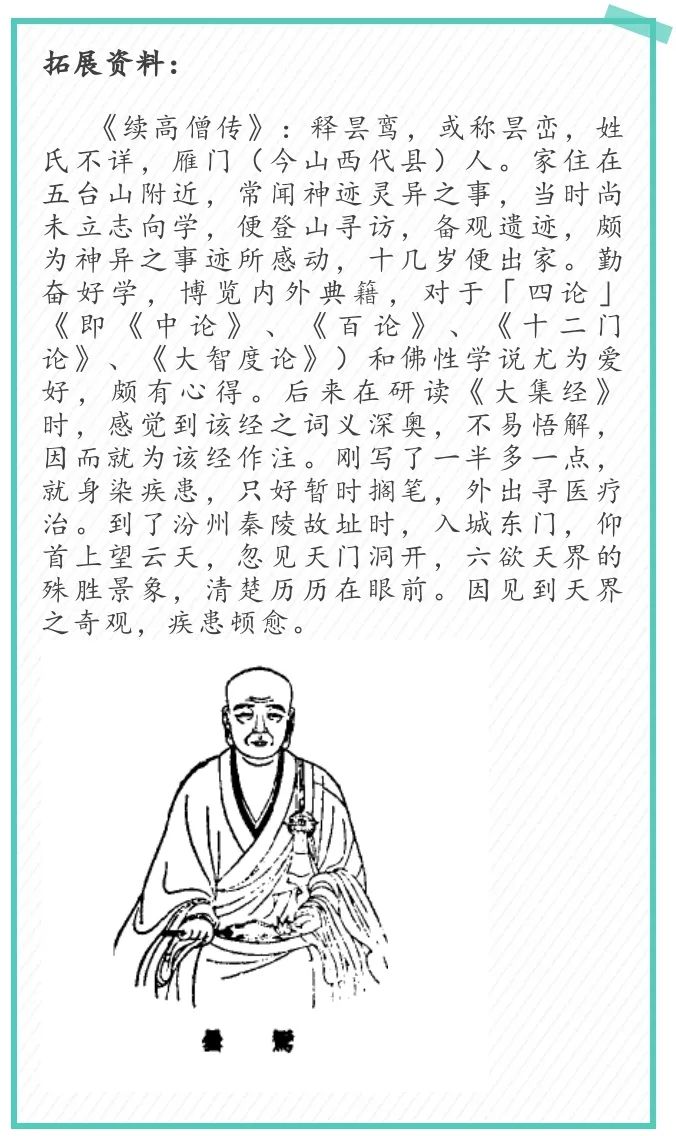 拓展资料：
《续高僧传》：释昙鸾，或称昙峦，姓
氏不详，雁门（今山西代县）人。家住在
五台山附近，常闻神迹灵异之事，当时尚
未立志向学，便登山寻访，备观遗迹，颇
为神异之事迹所感动，十几岁便出家。勤
奋好学，博览内外典籍，对于「四论」
《即《中论》、《百论》、《十二门
论》、《大智度论》）和佛性学说尤为爱
好，颇有心得。后来在研读《大集经》
时，感觉到该经之词义深奥，不易悟解，
因而就为该经作注。刚写了一半多一点，
就身染疾患，只好暂时搁笔，外出寻医疗
治。到了汾州秦陵故址时，入城东门，仰
首上望云天，忽见天门洞开，六欲天界的
殊胜景象，清楚历历在眼前。因见到天界
之奇观，疾患顿愈。
曇 鸞